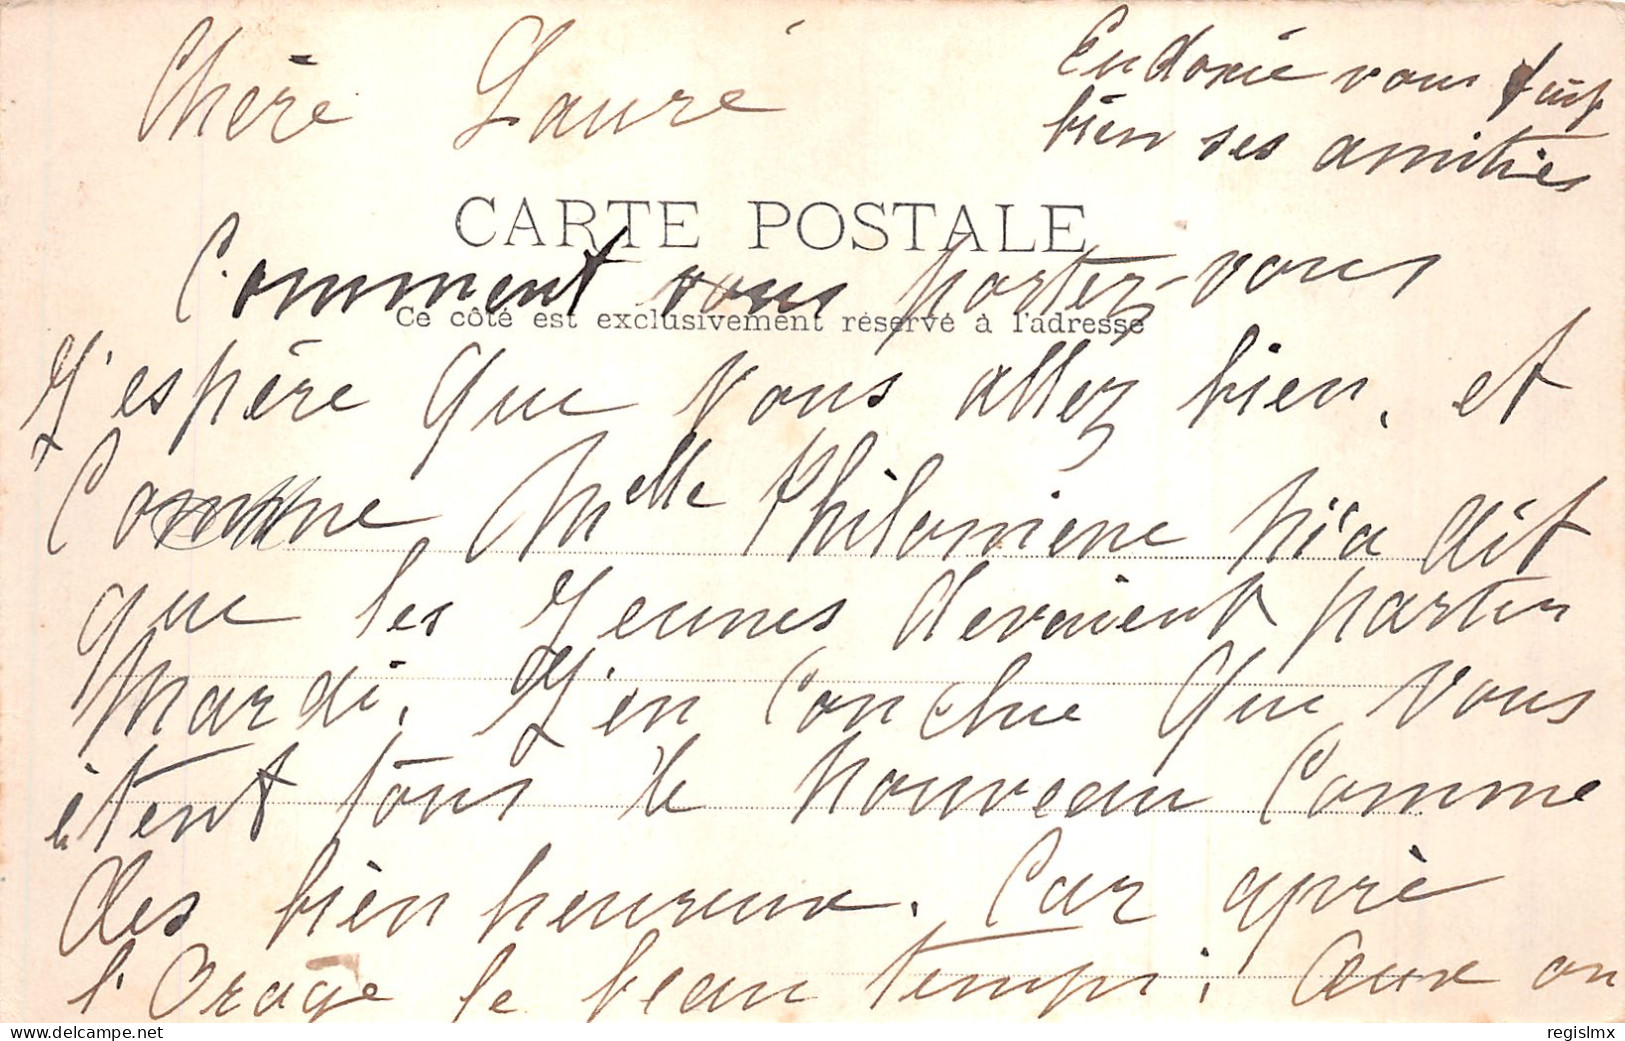 Chère Laure
Eudoxie vous fait
bien ses amitiés
CARTE POSTALE
Comment vous portez-vous
Ce côté est exclusivement réservé à l'adresse
J'espère que vous allez bien, et
Comme Melle Philomène m'a dit
que les jeunes devaient partir
Mardi, J'en conclue que vous
étent tous le nouveau comme
des bien heureux. Car aprè
l'Orage le beau temps;
on
www.delcampe.net
regislmx